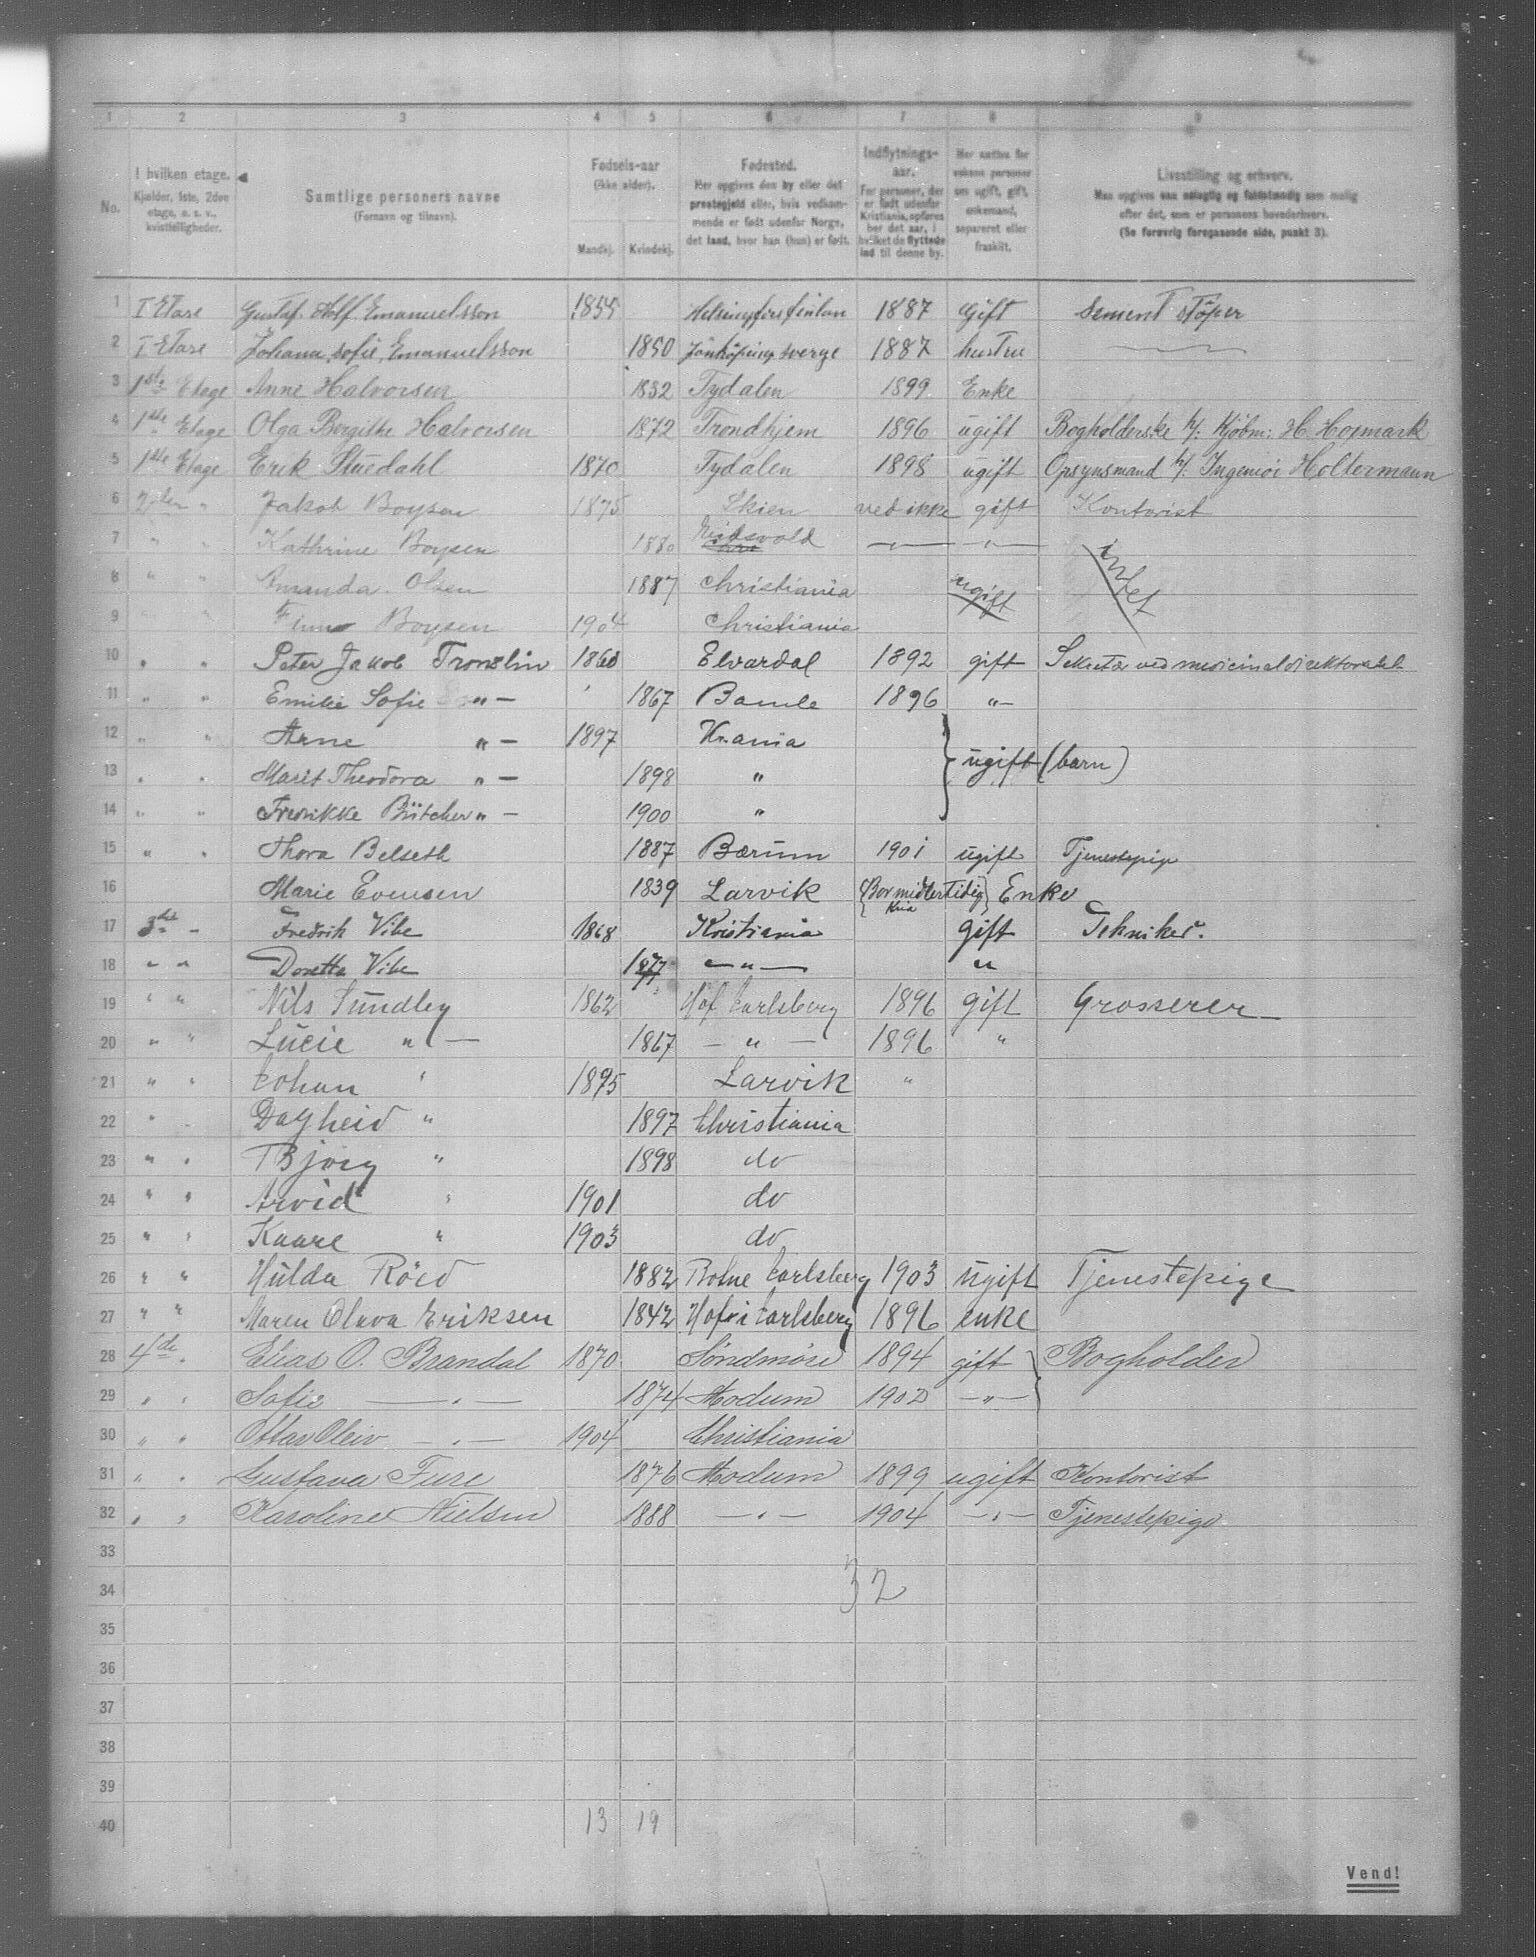 1 2 3 4 5 6 7 8 9
No.
I hvilken etage. Kjælder, 1ste, 2den etage, o. s. v., kvistleiligheder.
Samtlige personers navne (Fornavn og tilnavn).
Fødsels-aar (ikke alder). Mandkj. Kvindekj.
Fødested. Her opgives den by eller det prestegjeld eller, hvis vedkommende er født udenfor Norge, det land, hvor han (hun) er født.
Indflytnings-aar. For personer, der er født udenfor Kristiania, opføres her det aar, i hvilket de flyttede ind til denne by.
Her anføres for voksne personer om ugift, gift, enkemand, separeret eller fraskilt.
Livsstilling og erhverv. Maa opgives saa nøiagtig og fuldstændig som mulig efter det, som er personens hovederhverv. (Se forøvrig foregaaende side, punkt 3).
1 I Etare Gustaf Adolf Emanuelsson 1854 Helsingfors finlan 1887 Gift Sement støper
2 I Etare Johana Sofie Emanuelsson 1850 Jönköping sverge 1887 hustru
3 1ste Etage Anne Halvorsen 1832 Tydalen 1899 Enke
4 1ste Etage Olga Bergithe Halvorsen 1872 Trondhjem 1896 ugift Bogholderske h/: Kjøbm: H. Hopmark
5 1ste Etage Erik Stuedahl 1870 Tydalen 1898 ugift Opsynsmand h/: Ingeniør Holtermann
6 2den " Jakob Boysen 1875 Skien ved ikke gift Kontorist
7 " " Kathrine Boysen 1880 Eidsvold —"— —"—
8 " " Amanda Olsen 1887 Christiania ugift intet
9 Finn Boysen 1904 Christiania
10 " " Peter Jakob Tronslin 1860 Elvardal 1892 gift Sekretær ved medicinaldirektoratet
11 " " Emilie Sofie "— 1867 Bamle 1896 "—
12 " " Arne "— 1897 Kr.ania
13 " " Marit Theodora "— 1898 " ugift (barn)
14 " " Fredrikke Bütcher "— 1900 "
15 " " Thora Belseth 1887 Bærum 1901 ugift Tjenestepige
16 Marie Evensen 1839 Larvik (Bor midlertidig Kria) Enke
17 3die – Fredrik Vibe 1868 Kristiania gift Tekniker.
18 " " Doretta Vibe 1877 —"— "
19 " " Nils Sundby 1862 Hof Jarlsberg 1896 gift Grosserer
20 " " Lucie "— 1867 —"— 1896 "
21 " " Johan " 1895 Larvik "
22 " " Dagheid " 1897 Christiania
23 " " Bjørg " 1898 do
24 " " Arvid " 1901 do
25 " " Kaare " 1903 do
26 " " Hulda Röed 1882 Botne Jarlsberg 1903 ugift Tjenestepige
27 " " Maren Olava Eriksen 1842 Hof i Jarlsberg 1896 enke
28 4de " Elias O. Brandal 1870 Søndmøre 1894 gift Bogholder
29 " " Sofie —"— 1874 Modum 1902 —"—
30 " " Ottar Oleiv —"— 1904 Christiania
31 " " Gustava Fure 1876 Modum 1899 ugift Kontorist
32 " " Karoline Nielsen 1888 —"— 1904 —"— Tjenestepige
33
34 32
35
36
37
38
39
40 13 19
Vend!